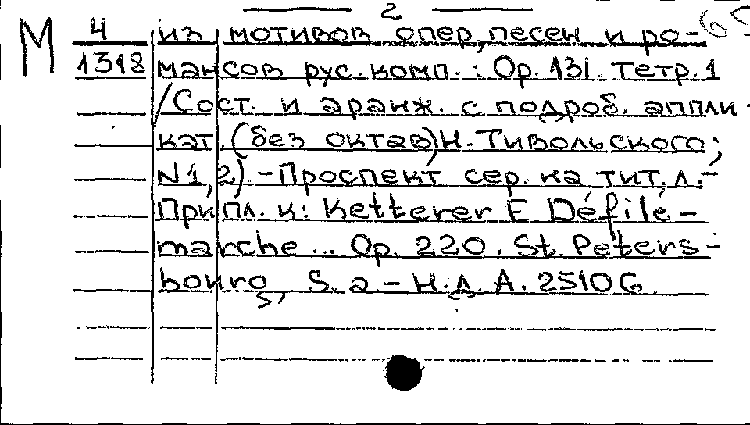 2
М 4 из мотивов опер, песен и ро-
1318 мансов рус. комп. : Op. 131. Тетр. 1
/Сост. и аранж. с подроб. аппли-
кат. (без октав) Н. Тивольского;
N 1, 2) - Проспект сер. на тит. л. -
Припл. к: Ketterer E Défilé-
marche ... Op. 220. St. Peters-
bourg, S. a - Н. д. A. 2510 G.